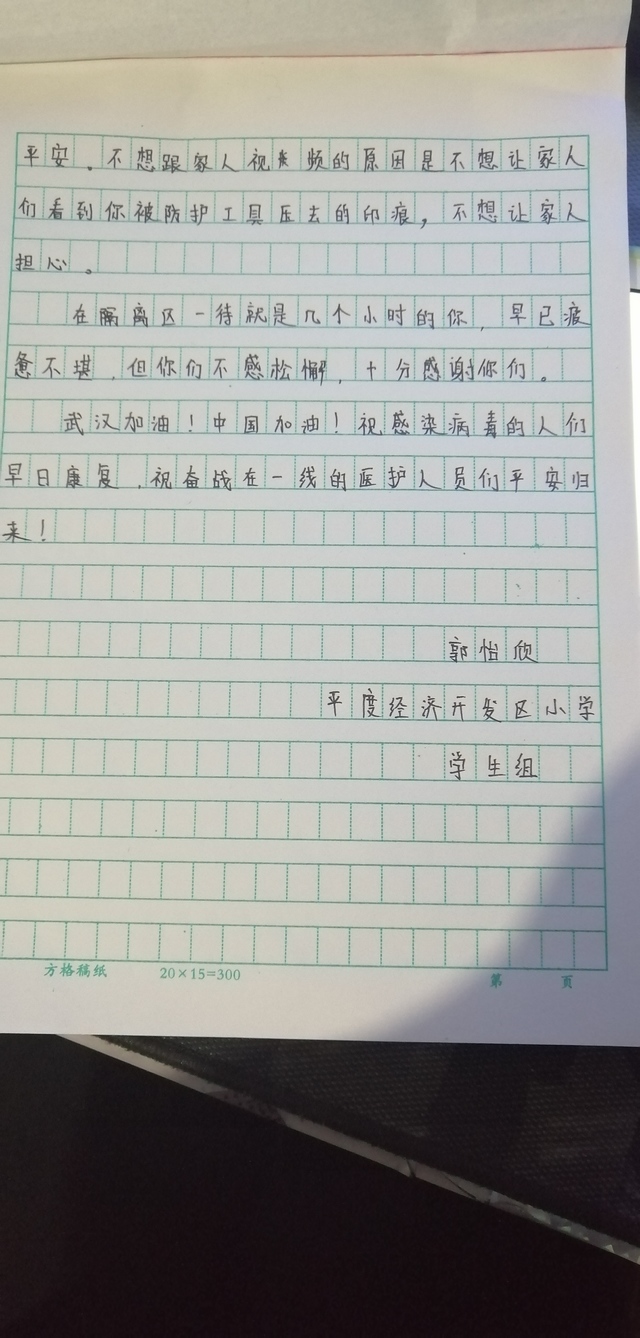 平安。不想跟家人视频的原因是不想让家人
们看到你被防护工具压去的印痕，不想让家人
担心。
在隔离区一待就是几个小时的你，早已疲
惫不堪，但你们不感松懈，十分感谢你们。
武汉加油！中国加油！祝感染病毒的人们
早日康复，祝奋战在一线的医护人员们平安归
来！
郭怡欣
平度经济开发区小学
学生组
方格稿纸 20×15=300 第 页